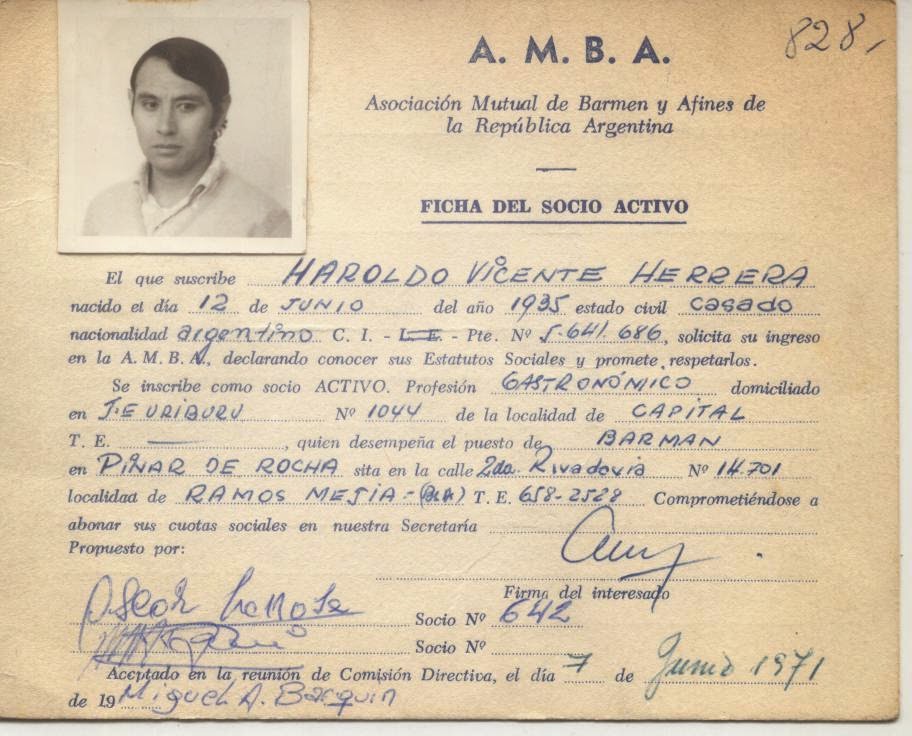 828,-
A. M. B. A.
Asociación Mutual de Barmen y Afines de
la República Argentina
FICHA DEL SOCIO ACTIVO
El que suscribe HAROLDO VICENTE HERRERA
nacido el día 12 de JUNIO del año 1935 estado civil casado
nacionalidad argentino C. I. - L. E. - Pte. Nº 5.641.686, solicita su ingreso
en la A.M.B.A., declarando conocer sus Estatutos Sociales y promete respetarlos.
Se inscribe como socio ACTIVO. Profesión GASTRONÓMICO domiciliado
en J.E URIBURU Nº 1044 de la localidad de CAPITAL
T. E. ——, quien desempeña el puesto de BARMAN
en PINAR DE ROCHA sita en la calle 2da. Rivadavia Nº 14.701
localidad de RAMOS MEJIA - (Bs.A) T. E. 658-2528 Comprometiéndose a
abonar sus cuotas sociales en nuestra Secretaría
Propuesto por:
Firma del interesado
Oscar Socio Nº 642
Socio Nº
Aceptado en la reunión de Comisión Directiva, el día 7 de Junio 1971
de 19 Miguel A. Barquin